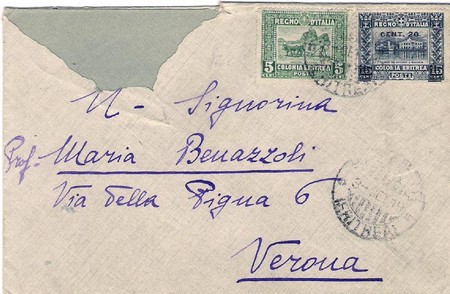 REGNO D'ITALIA
5 COLONIA ERITREA 5
POSTE
REGNO D'ITALIA
CENT. 20
15 COLONIA ERITREA 15
POSTE
N- Signorina
Prof. Maria Benazzoli
Via della Pigna 6
Verona
(ERITREA)